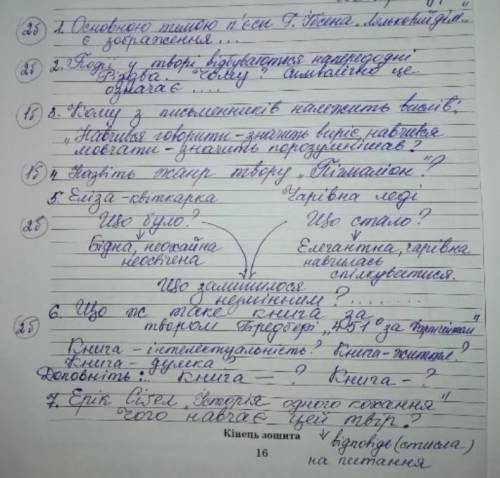 2б 1. Основною темою п'єси Г. Ібсена „Ляльковий дім"
є зображення ...
2б 2. Події у творі відбуваються напередодні
Різдва. Чому? Символічно це
означає ....
1б 3. Кому з письменників належить вислів:
„Навчився говорити - значить виріс, навчився
мовчати - значить порозумнішав?
1б 4. Назвіть жанр твору „Пігмаліон"?
5. Еліза - квіткарка Чарівна леді
2б Що було? Що стало?
Бідна, неохайна Елегантна, чарівна
неосвічена навчилась
спілкуватися.
Що залишилося
незмінним? ......
6. Що ж таке книга за
2б твором Бредбері „451° за Фаренгейтом
Книга - інтелектуальність? Книга - життя?
Книга - думка
Доповніть: Книга - ? Книга - ?
7. Ерік Сігел „Історія одного кохання"
Чого навчає цей твір?
Кінець зошита
відповідь (стисла)
16
на питання